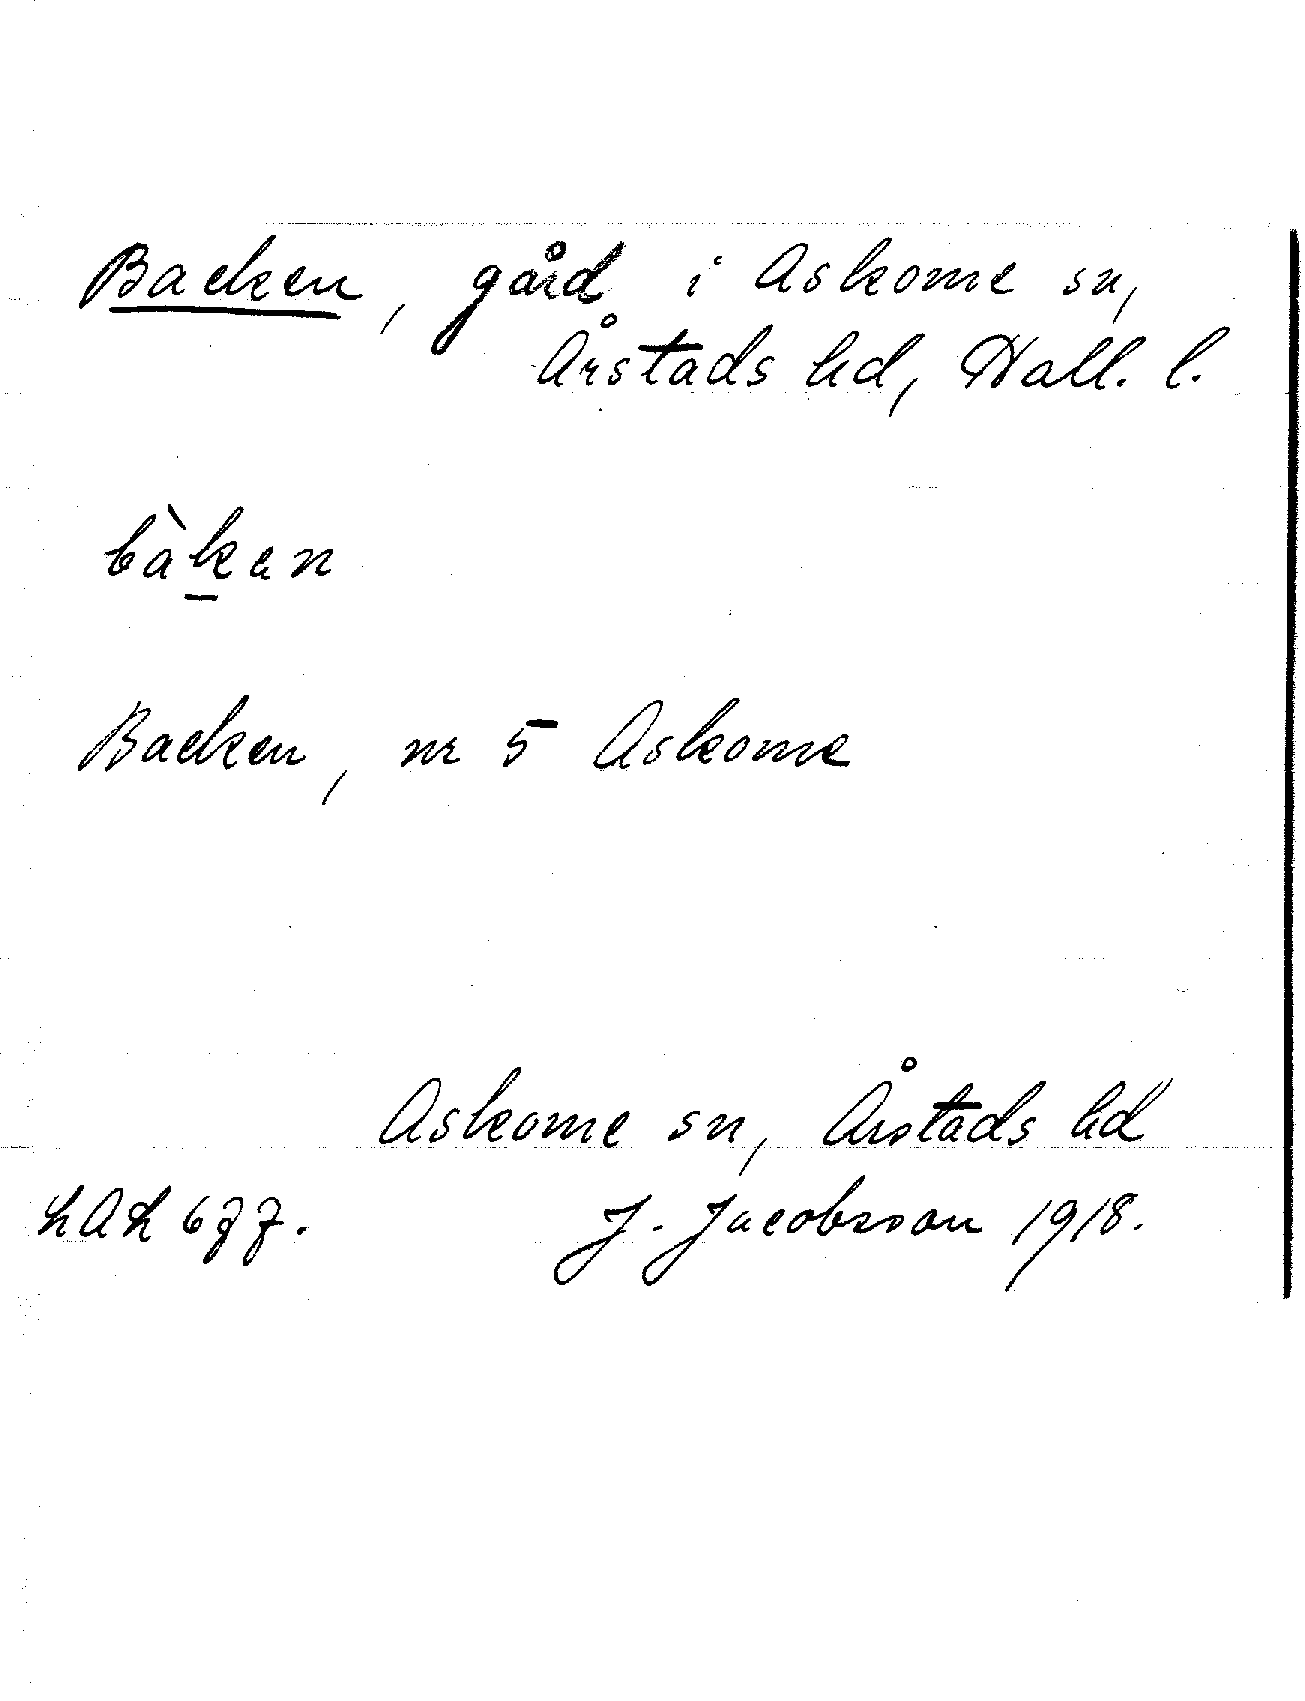 Backen, gård i Askome sn,
Årstads hd, Hall. l.
bàken
Backen, nr 5 Askome
Askome sn, Årstads hd
J. Jacobsson 1918.